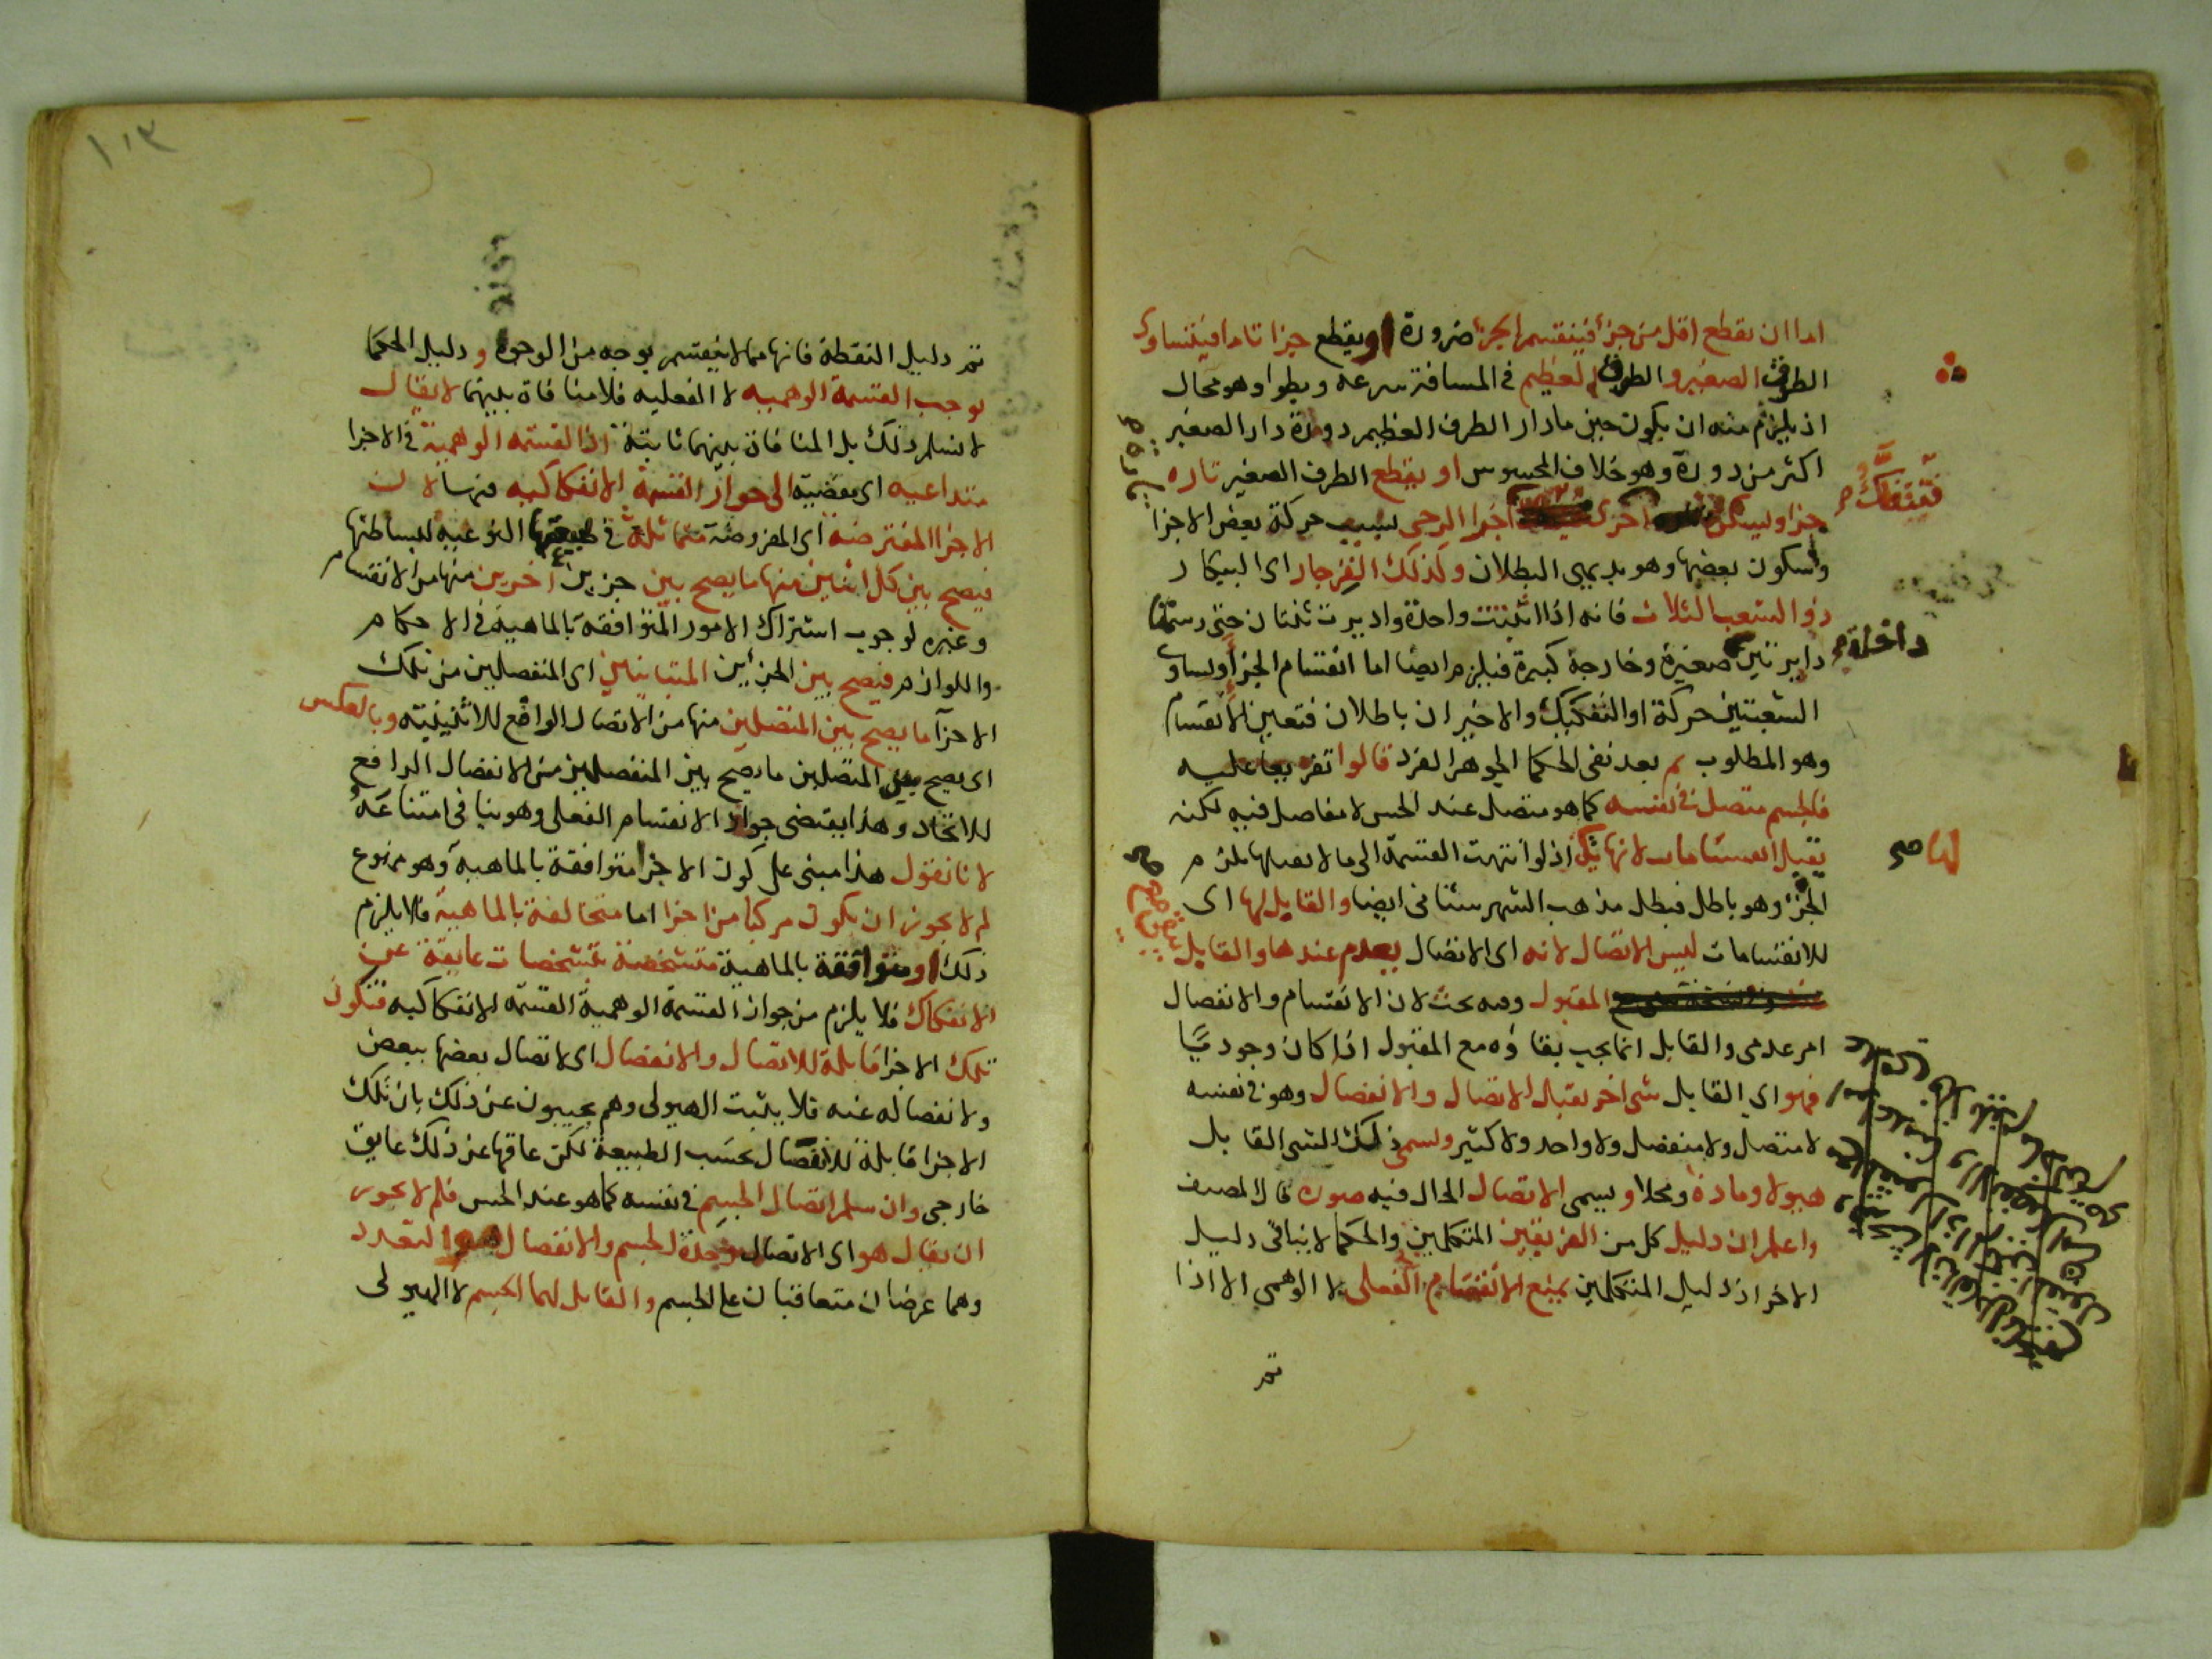 اما ان يقطع اقل من جزء فينقسم الجزء ضرورة او يقطع جزا تاما فيتساوى
الطرف الصغير والطرف العظيم في المسافة سرعة وبطوا وهو محال
اذ يلزم منه ان يكون حين ما دار الطرف العظيم دورة دار الصغير
اكثر من دورة وهو خلاف المحسوس او يقطع الطرف الصغير تاره
جزا ويسكن اخرى
فتتفكك
اجزا الرحى بسبب حركة بعض الاجزا
وسكون بعضها وهو بديهي البطلان وكذلك الفرجار اى البيكار
ذو الشعب الثلاث فانه اذا اثبتت واحدة واديرت ثنتان حتى رسمتا
دايرتين صغيرة
داخلة
وخارجة كبيرة فيلزم ايضا اما انقسام الجزا او تساوى
الشعبتين حركة او التفكيك والاخيران باطلان فتعين الانقسام
وهو المطلوب ثم بعد نفى الحكما الجوهر الفرد قالوا تفريعا عليه
فالجسم متصل في نفسه كما هو متصل عند الحس لا مفاصل فيه لكنه
يقبل انقسامات لا نهاية
لها صح
اذ لو انتهت القسمة الى ما لا يقبلها يلزم
الجزا وهو باطل فبطل مذهب الشهرستانى ايضا والقابل لها اى
للانقسامات ليس الاتصال لانه اى الاتصال يعدم عندها والقابل
المقبول وفيه بحث لان الانقسام والانفصال
امر عدمى والقابل انما يجب بقاؤه مع المقبول اذا كان وجوديا
فهو اى القابل شى اخر يقبل الاتصال والانفصال وهو في نفسه
لا متصل ولا منفصل ولا واحد ولا كثير ويسمى ذلك الشى القابل
هيولا ومادة ومحلا ويسمى الاتصال الحال فيه صورة قال المصنف
واعلم ان دليل كل من الفريقين المتكلمين والحكما لا ينافى دليل
الاخر اذ دليل المتكلمين يمنع الانقسام الفعلى لا الوهمى الا اذا
تم
١١٣
تم دليل النقطة فانها مما لا ينقسم بوجه من الوجوه ودليل الحكما
يوجب القسمة الوهمية لا الفعلية فلا منافاة بينهما لا يقال
لا نسلم ذلك بل المنافاة بينهما ثابتة اذ القسمة الوهمية في الاجزا
متداعية اى مفضية الى جواز القسمة الانفكاكية فيها لان
الاجزا المفترضة اى المفروضة متماثلة في طبيعتها النوعية لبساطتها
فيصح بين كل اثنين منها ما يصح بين جزين اخرين منها من الانقسام
وغيره لوجوب اشتراك الامور المتوافقة بالماهية في الاحكام
واللوازم فيصح بين الجزئين المتباينين اى المنفصلين من تلك
الاجزآ ما يصح بين المتصلين منها من الاتصال الواقع للاثنينية وبالعكس
اى يصح بين المتصلين ما يصح بين المنفصلين من الانفصال الرافع
للاتحاد وهذا يقتضى جواز الانقسام الفعلى وهو ينافى امتناعه
لانا نقول هذا مبنى على كون الاجزا متوافقة بالماهية وهو ممنوع
لم لا يجوز ان يكون مركبا من اجزا اما متخالفة بالماهية فلا يلزم
ذلك او متوافقة بالماهية متشخصة بتشخصات عايقة عن
الانفكاك فلا يلزم من جواز القسمة الوهمية القسمة الانفكاكية فتكون
تلك الاجزا قابلة للاتصال والانفصال اى لاتصال بعضها ببعض
ولانفصاله عنه فلا يثبت الهيولى وهم يجيبون عن ذلك بان تلك
الاجزا قابلة للانفصال بحسب الطبيعة لكن عاقها عن ذلك عايق
خارجى وان سلم اتصال الجسم في نفسه كما هو عند الحس فلم لا يجوز
ان يقال هو اى الاتصال وحدة الجسم والانفصال هو التعدد
وهما عرضان متعاقبان على الجسم والقابل لهما الجسم لا الهيولى